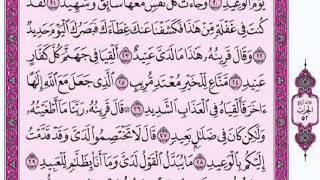 يَوْمُ ٱلْوَعِيدِ ٢٠ وَجَآءَتْ كُلُّ نَفْسٍ مَّعَهَا سَآئِقٌ وَشَهِيدٌ ٢١ لَّقَدْ
كُنتَ فِى غَفْلَةٍ مِّنْ هَٰذَا فَكَشَفْنَا عَنكَ غِطَآءَكَ فَبَصَرُكَ ٱلْيَوْمَ حَدِيدٌ
٢٢ وَقَالَ قَرِينُهُۥ هَٰذَا مَا لَدَىَّ عَتِيدٌ ٢٣ أَلْقِيَا فِى جَهَنَّمَ كُلَّ كَفَّارٍ
عَنِيدٍ ٢٤ مَّنَّاعٍ لِّلْخَيْرِ مُعْتَدٍ مُّرِيبٍ ٢٥ ٱلَّذِى جَعَلَ مَعَ ٱللَّهِ إِلَٰهًا
ءَاخَرَ فَأَلْقِيَاهُ فِى ٱلْعَذَابِ ٱلشَّدِيدِ ٢٦ قَالَ قَرِينُهُۥ رَبَّنَا مَآ أَطْغَيْتُهُۥ
وَلَٰكِن كَانَ فِى ضَلَٰلٍۭ بَعِيدٍ ٢٧ قَالَ لَا تَخْتَصِمُوا۟ لَدَىَّ وَقَدْ قَدَّمْتُ
إِلَيْكُم بِٱلْوَعِيدِ ٢٨ مَا يُبَدَّلُ ٱلْقَوْلُ لَدَىَّ وَمَآ أَنَا۠ بِظَلَّٰمٍ لِّلْعَبِيدِ ٢٩